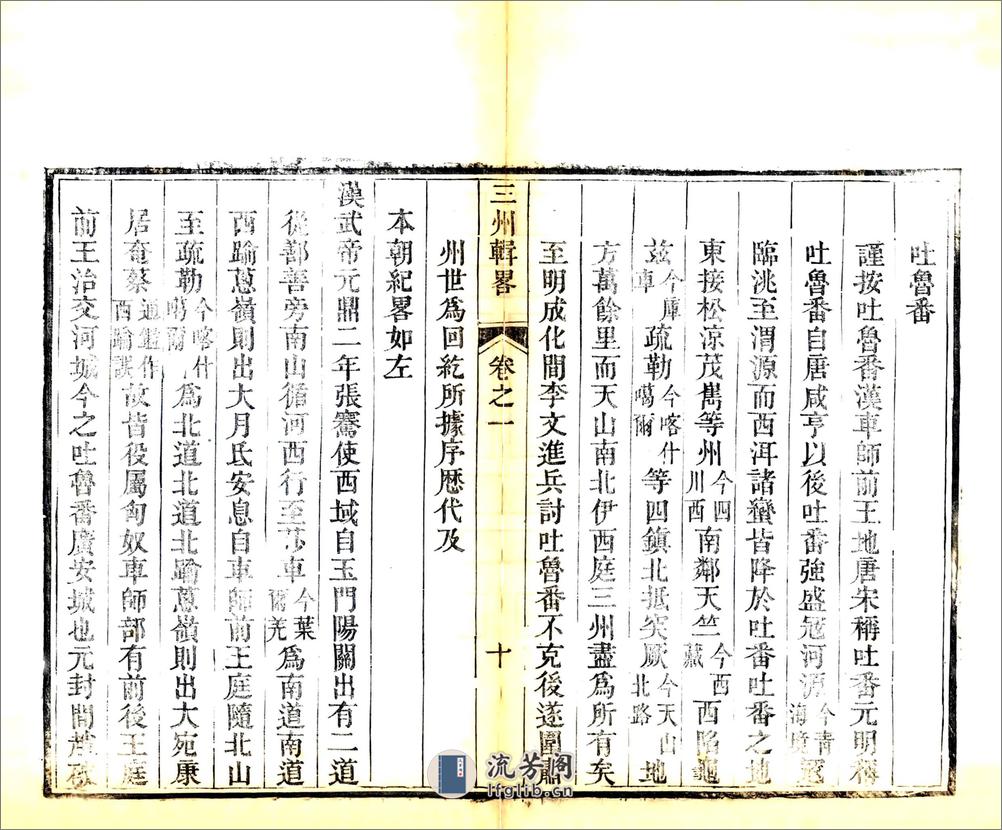 吐魯番
謹按吐魯番漢車師前王地唐宋稱吐番元明稱
吐魯番自唐咸亨以後吐番強盛冠河源今青海境冠
臨洮至渭源而西洱諸蠻皆降於吐番吐番之地
東接松涼茂雋等州今四川西南鄰天竺今西藏西陷龜
茲今庫車疏勒今喀什噶爾等四鎮北抵突厥今天山北路地
方萬餘里而天山南北伊西庭三州盡為所有矣
至明成化間李文進兵討吐魯番不克後遂圍肅
州世為回紇所據序歷代及
本朝紀畧如左
漢武帝元鼎二年張騫使西域自玉門陽關出有二道
從鄯善旁南山循河西行至莎車今葉爾羌為南道南道
西踰蔥嶺則出大月氏安息自車師前王庭隨北山
至疏勒今喀什噶爾為北道北道北踰蔥嶺則出大宛康
居奄蔡通鑑作西踰誤故皆役屬匈奴車師部有前後王庭
前王治交河城今之吐魯番廣安城也元封間趙破
三州輯畧
卷之一
十
流芳阁
lfglib.cn